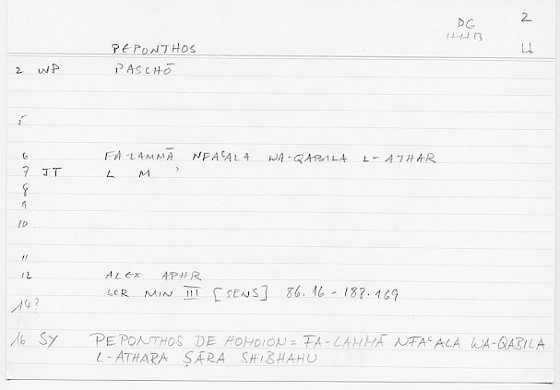 DG 2
PEPONTHOS
2 WP PASCHŌ
5
6 FA-LAMMĀ NFAʿALA WA-QABILA L-ATHAR
7 JT L M ʾ
8
9
10
11
12 ALEX APHR
SCR MIN III [SENS] 86.16-188.169
14?
16 SY PEPONTHOS DE HOMOION = FA-LAMMĀ NFAʿALA WA-QABILA
L-ATHARA ṢĀRA SHIBHAHU